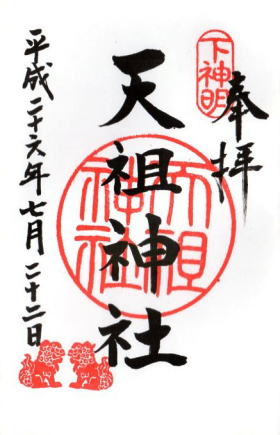 奉拝
下神明
天祖神社
天祖神社
平成二十六年七月二十二日